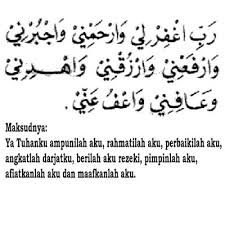 رَبِّ اغْفِرْ لِيْ وَارْحَمْنِيْ وَاجْبُرْنِيْ
وَارْفَعْنِيْ وَارْزُقْنِيْ وَاهْدِنِيْ
وَعَافِنِيْ وَاعْفُ عَنِّيْ .
Maksudnya:
Ya Tuhanku ampunilah aku, rahmatilah aku, perbaikilah aku,
angkatlah darjatku, berilah aku rezeki, pimpinlah aku,
afiatkanlah aku dan maafkanlah aku.